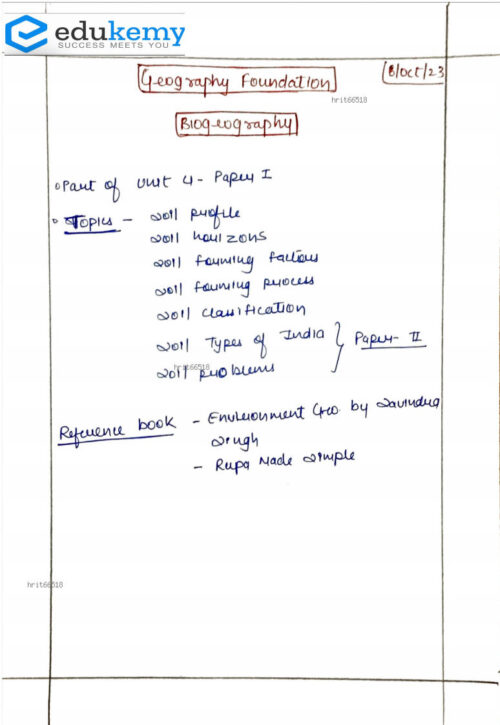 edukemy
SUCCESS MEETS YOU
Geography Foundation
8/Oct/23
hrit66518
Biogeography
Part of Unit 4 - Paper I
Topics - Soil profile
Soil horizons
Soil forming factors
Soil forming process
Soil classification
Soil Types of India } Paper - II
hrit66518
Soil problems
Reference book - Environment Geo. by Savindra
Singh
- Rupa Made Simple
hrit66518